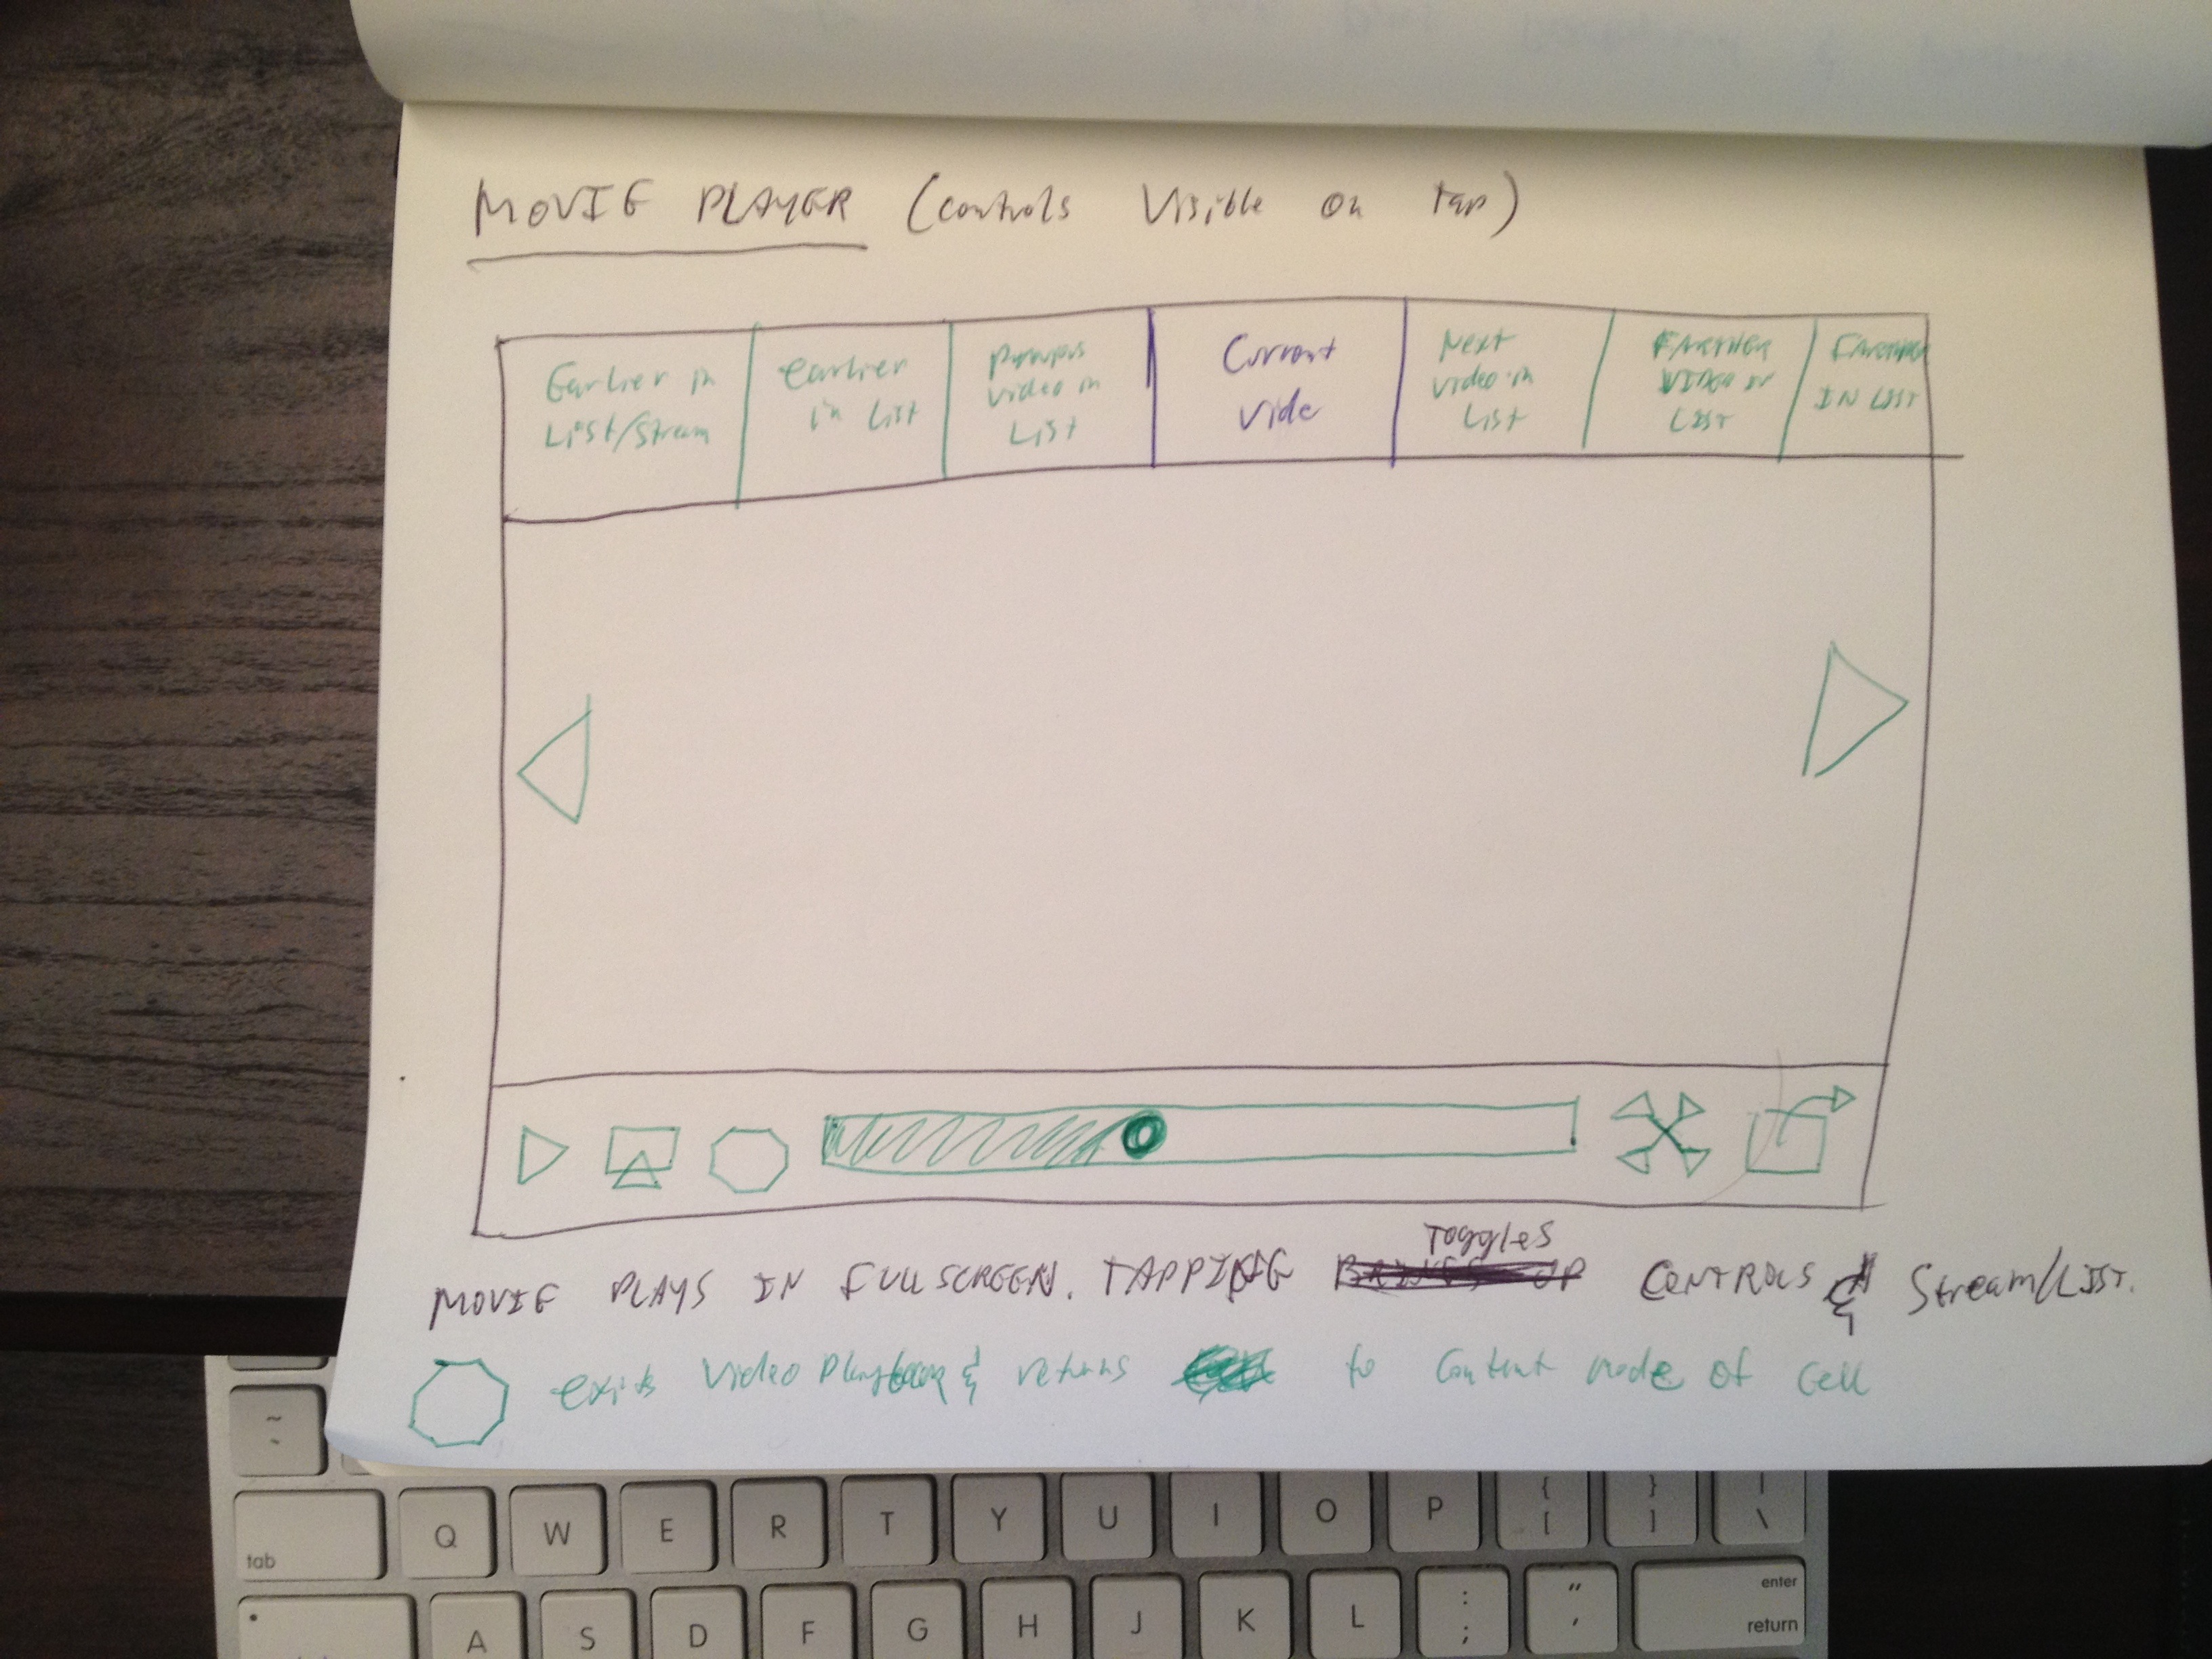 MOVIE PLAYER (controls Visible on tap)
Earlier in
List/Stream
earlier
in List
previous
video in
List
Current
vide
Next
video in
List
FARTHER
VIDEO IN
LIST
FARTHER
IN LIST
Toggles
MOVIE PLAYS IN FULLSCREEN. TAPPING BRINGS UP CONTROLS & Stream/LIST.
exits Video Playback & returns to Content mode of Cell
~
`
{
[
}
]
|
\
tab
Q W E R T Y U I O P
enter
return
A S D F G H J K L
:
;
"
'